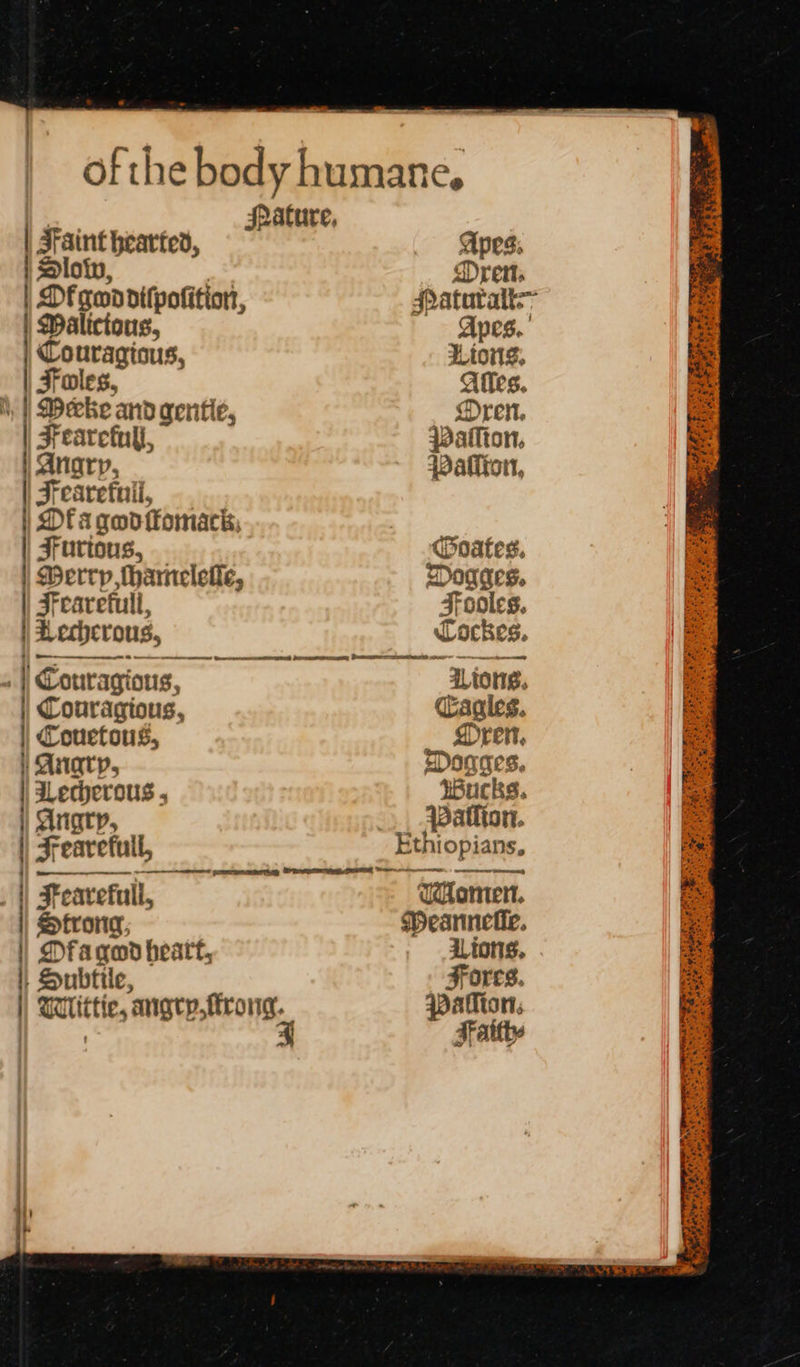 of the body humane,
Nature,
Faint hearted, Apes.
Slow, Oxen.
Of good diſpoſition, Naturall
Malicious, Apes.
Couragious, Lions.
Fooles, Aſſes.
Meeke and gentle, Oxen.
Fearefull, Paſſion,
Angry, Paſſion,
Fearefull,
Of a good ſtomack,
Furious, Goates.
Merry, ſhameleſſe, Dogges.
Fearefull, Fooles.
Lecherous, Cockes.
Couragious, Lions.
Couragious, Eagles.
Couetous, Oxen.
Angry, Dogges.
Lecherous, Bucks.
Angry, Paſſion.
Fearefull, Ethiopians.
Fearefull, Women.
Strong, Meanneſſe.
Of a good heart, Lions.
Subtile, Foxes.
Wittie, angry, ſtrong. Paſſion.
Faith